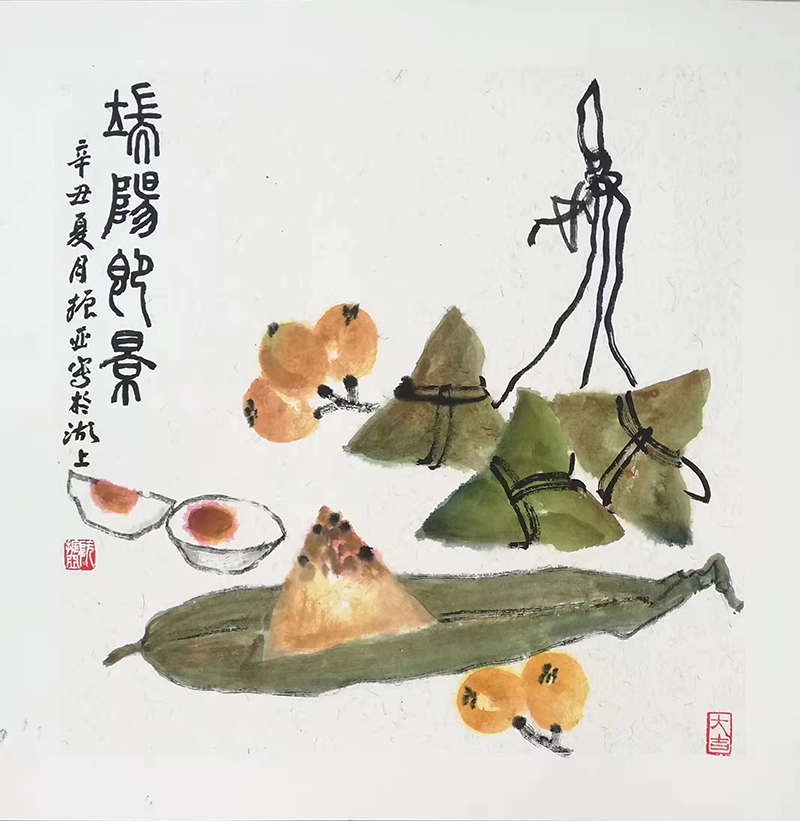 端陽即景
辛丑夏月振亚寫於湖上
大吉